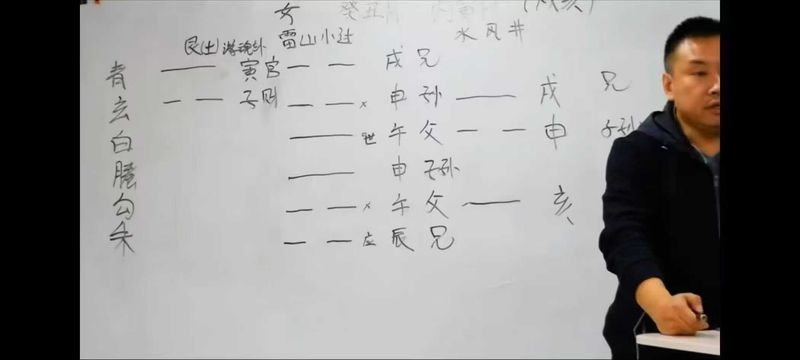 女
雷山小过 水风井
艮(土)游魂卦
青 寅官 戌兄
玄 子财 × 申孙 戌 兄
白 世 午父 申 子孙
螣 申子孙
勾 × 午父 亥
朱 应 辰兄